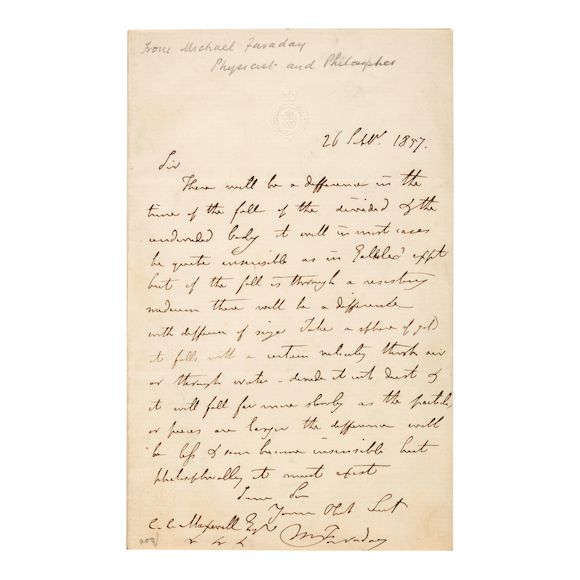 From Michael Faraday
Physicist and Philosopher
26 Septr. 1857.
Sir
There will be a difference in the
time of the fall of the divided & the
undivided body it will in most cases
be quite insensible as in Galileo's expt
but if the fall is through a resisting
medium there will be a difference
with difference of size Take a sphere of gold
it falls with a certain velocity through air
or through water - divide it into dust &
it will fall far more slowly as the particles
or pieces are larger the difference will
be less & soon become insensible but
philosophically it must exist
I am Sir
Your Obt Servt
C. C. Maxwell Esqre
M Faraday
&c &c &c